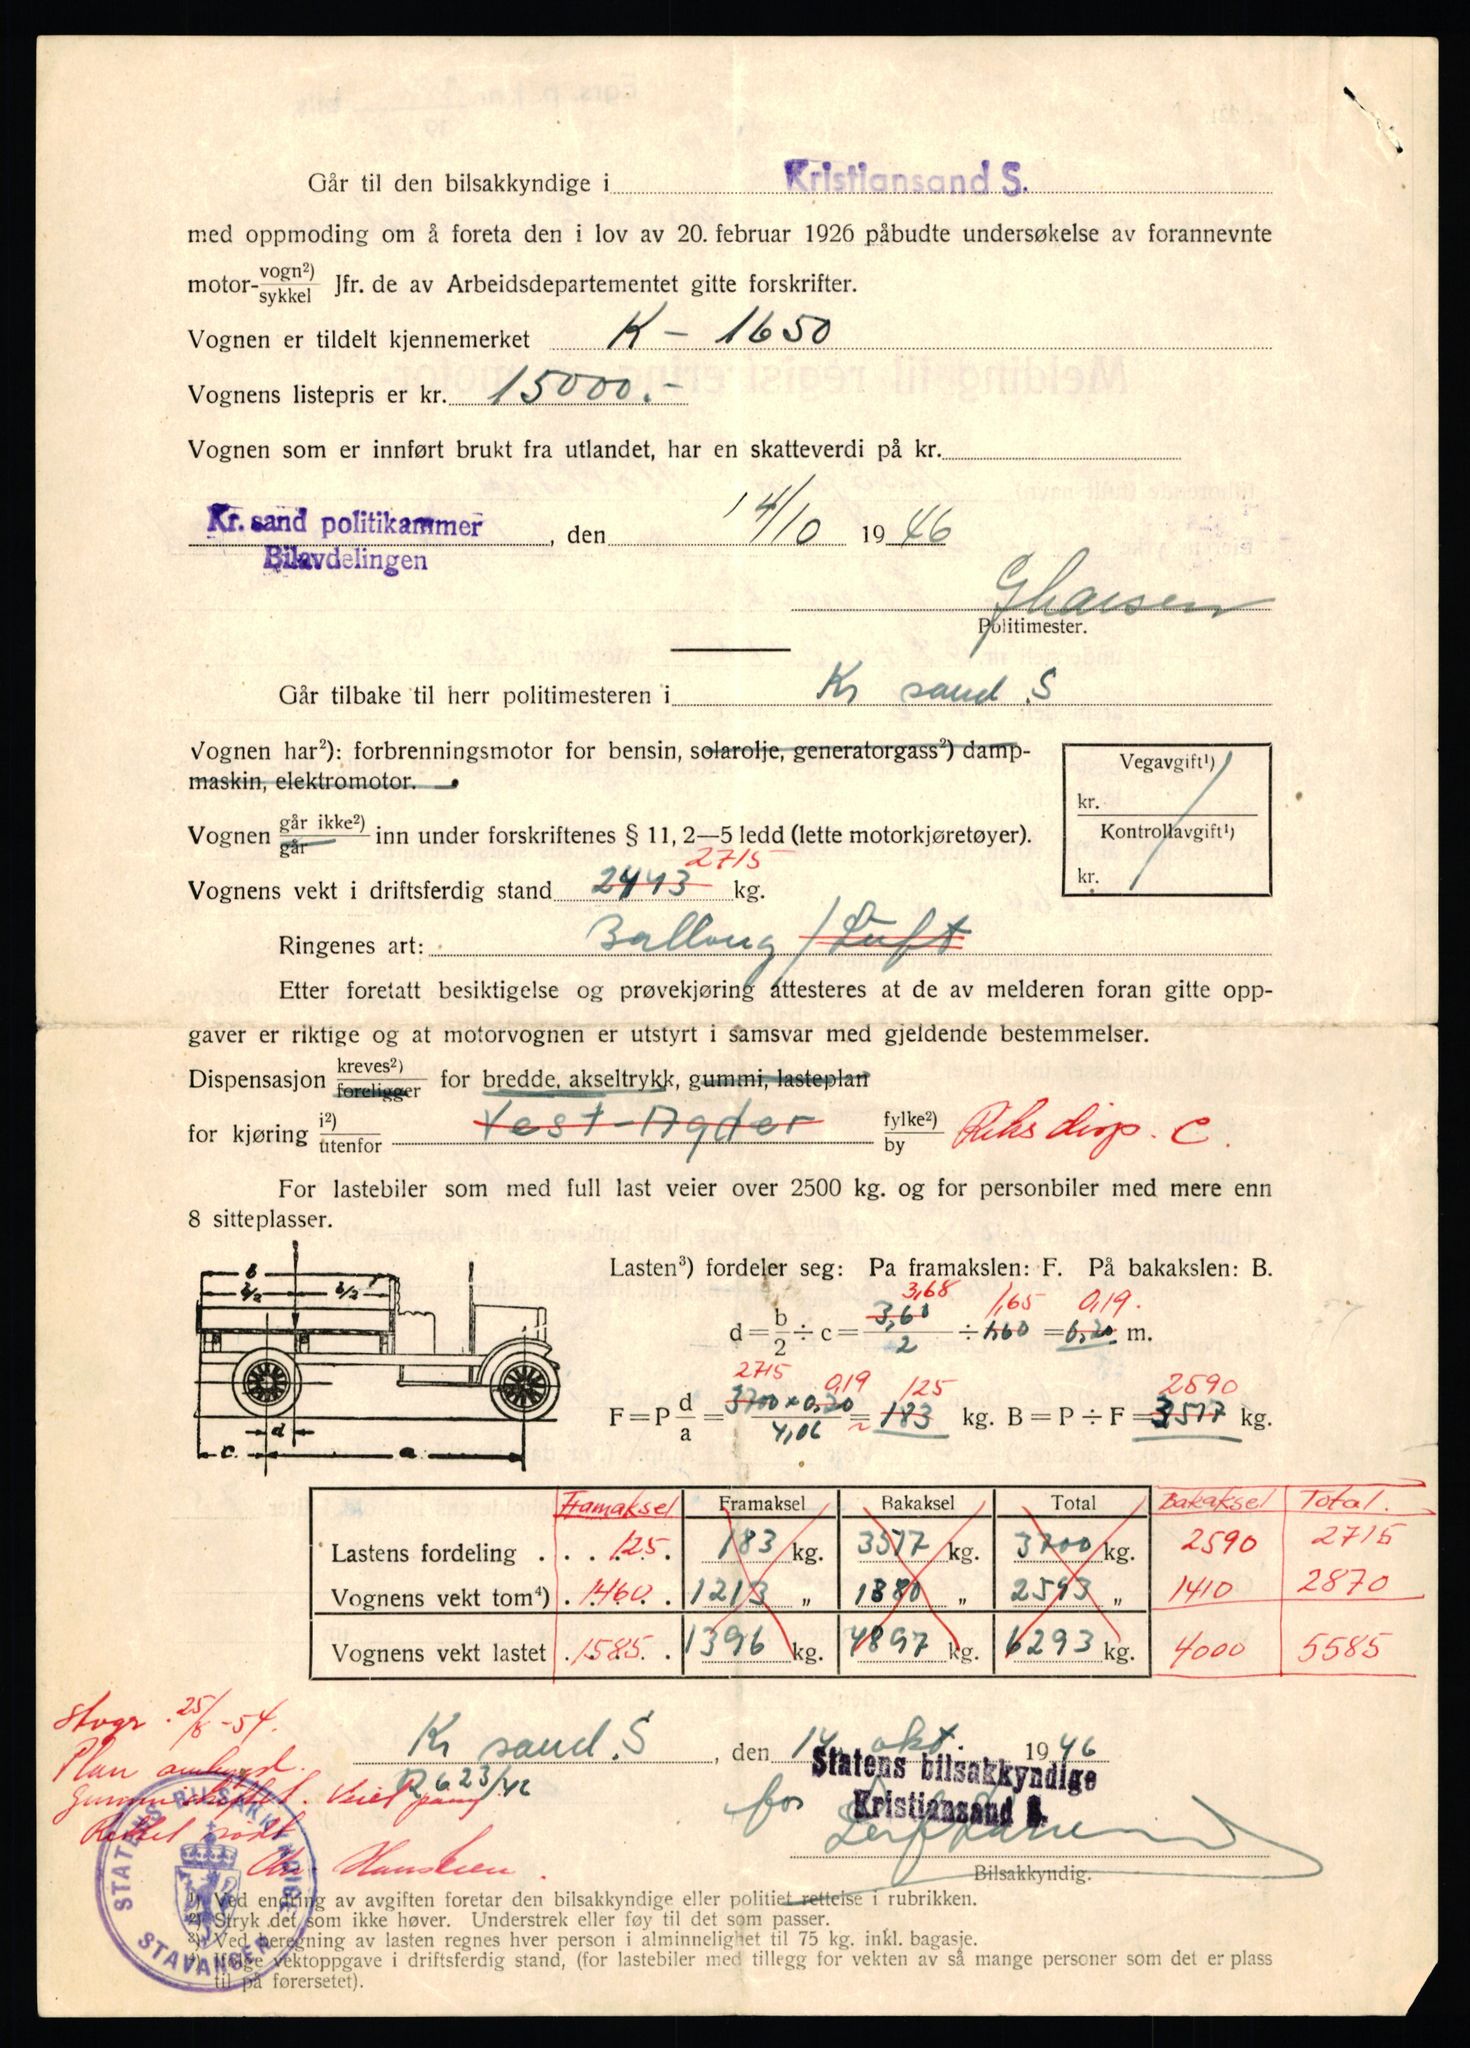 Går til den bilsakkyndige i Kristiansand S.
med oppmoding om å foreta den i lov av 20. februar 1926 påbudte undersøkelse av forannevnte
motor-vogn²)/sykkel Jfr. de av Arbeidsdepartementet gitte forskrifter.
Vognen er tildelt kjennemerket K - 1650
Vognens listepris er kr. 15000.-
Vognen som er innført brukt fra utlandet, har en skatteverdi på kr.
Kr. sand politikammer, den 14/10 1946
Bilavdelingen
Politimester.
Går tilbake til herr politimesteren i Kr sand. S
Vognen har²): forbrenningsmotor for bensin, solarolje, generatorgass²) damp-
maskin, elektromotor.
Vegavgift¹)
kr.
Kontrollavgift¹)
kr.
Vognen går ikke²)/går inn under forskriftenes § 11, 2—5 ledd (lette motorkjøretøyer).
2715
Vognens vekt i driftsferdig stand 2443 kg.
Ringenes art: Ballong / Luft
Etter foretatt besiktigelse og prøvekjøring attesteres at de av melderen foran gitte opp-
gaver er riktige og at motorvognen er utstyrt i samsvar med gjeldende bestemmelser.
Dispensasjon kreves²)/foreligger for bredde, akseltrykk, gummi, lasteplan
for kjøring i²)/utenfor Vest-Agder fylke²)/by Riks disp. C.
For lastebiler som med full last veier over 2500 kg. og for personbiler med mere enn
8 sitteplasser.
Lasten³) fordeler seg: Pa framakslen: F. På bakakslen: B.
3,68 1,65 0,19.
d = b/2 ÷ c = 3,60/2 ÷ 1,60 = 0,20 m.
2715 0,19 125 2590
F = P d/a = 3700 x 0,20/4,06 = 183 kg. B = P ÷ F = 3517 kg.
b
b/2 b/2
d
c. a
Framaksel Framaksel Bakaksel Total Bakaksel Total.
Lastens fordeling . . . . . 125 183 kg. 3517 kg. 3700 kg. 2590 2715
Vognens vekt tom⁴) . . . . 1460 1213 „ 1380 „ 2593 „ 1410 2870
Vognens vekt lastet . . . . 1585 1396 kg. 4897 kg. 6293 kg. 4000 5585
Kr sand. S, den 14. okt. 1946
Stvgr. 25/8-54.
Plan
R 623/46
Statens bilsakkyndige
Kristiansand S.
for
Bilsakkyndig.
STATENS BILSAKKYNDIGE
STAVANGER
¹) Ved endring av avgiften foretar den bilsakkyndige eller politiet rettelse i rubrikken.
²) Stryk det som ikke høver. Understrek eller føy til det som passer.
³) Ved beregning av lasten regnes hver person i alminnelighet til 75 kg. inkl. bagasje.
⁴) Ifølge vektoppgave i driftsferdig stand, (for lastebiler med tillegg for vekten av så mange personer som det er plass
til på førersetet).